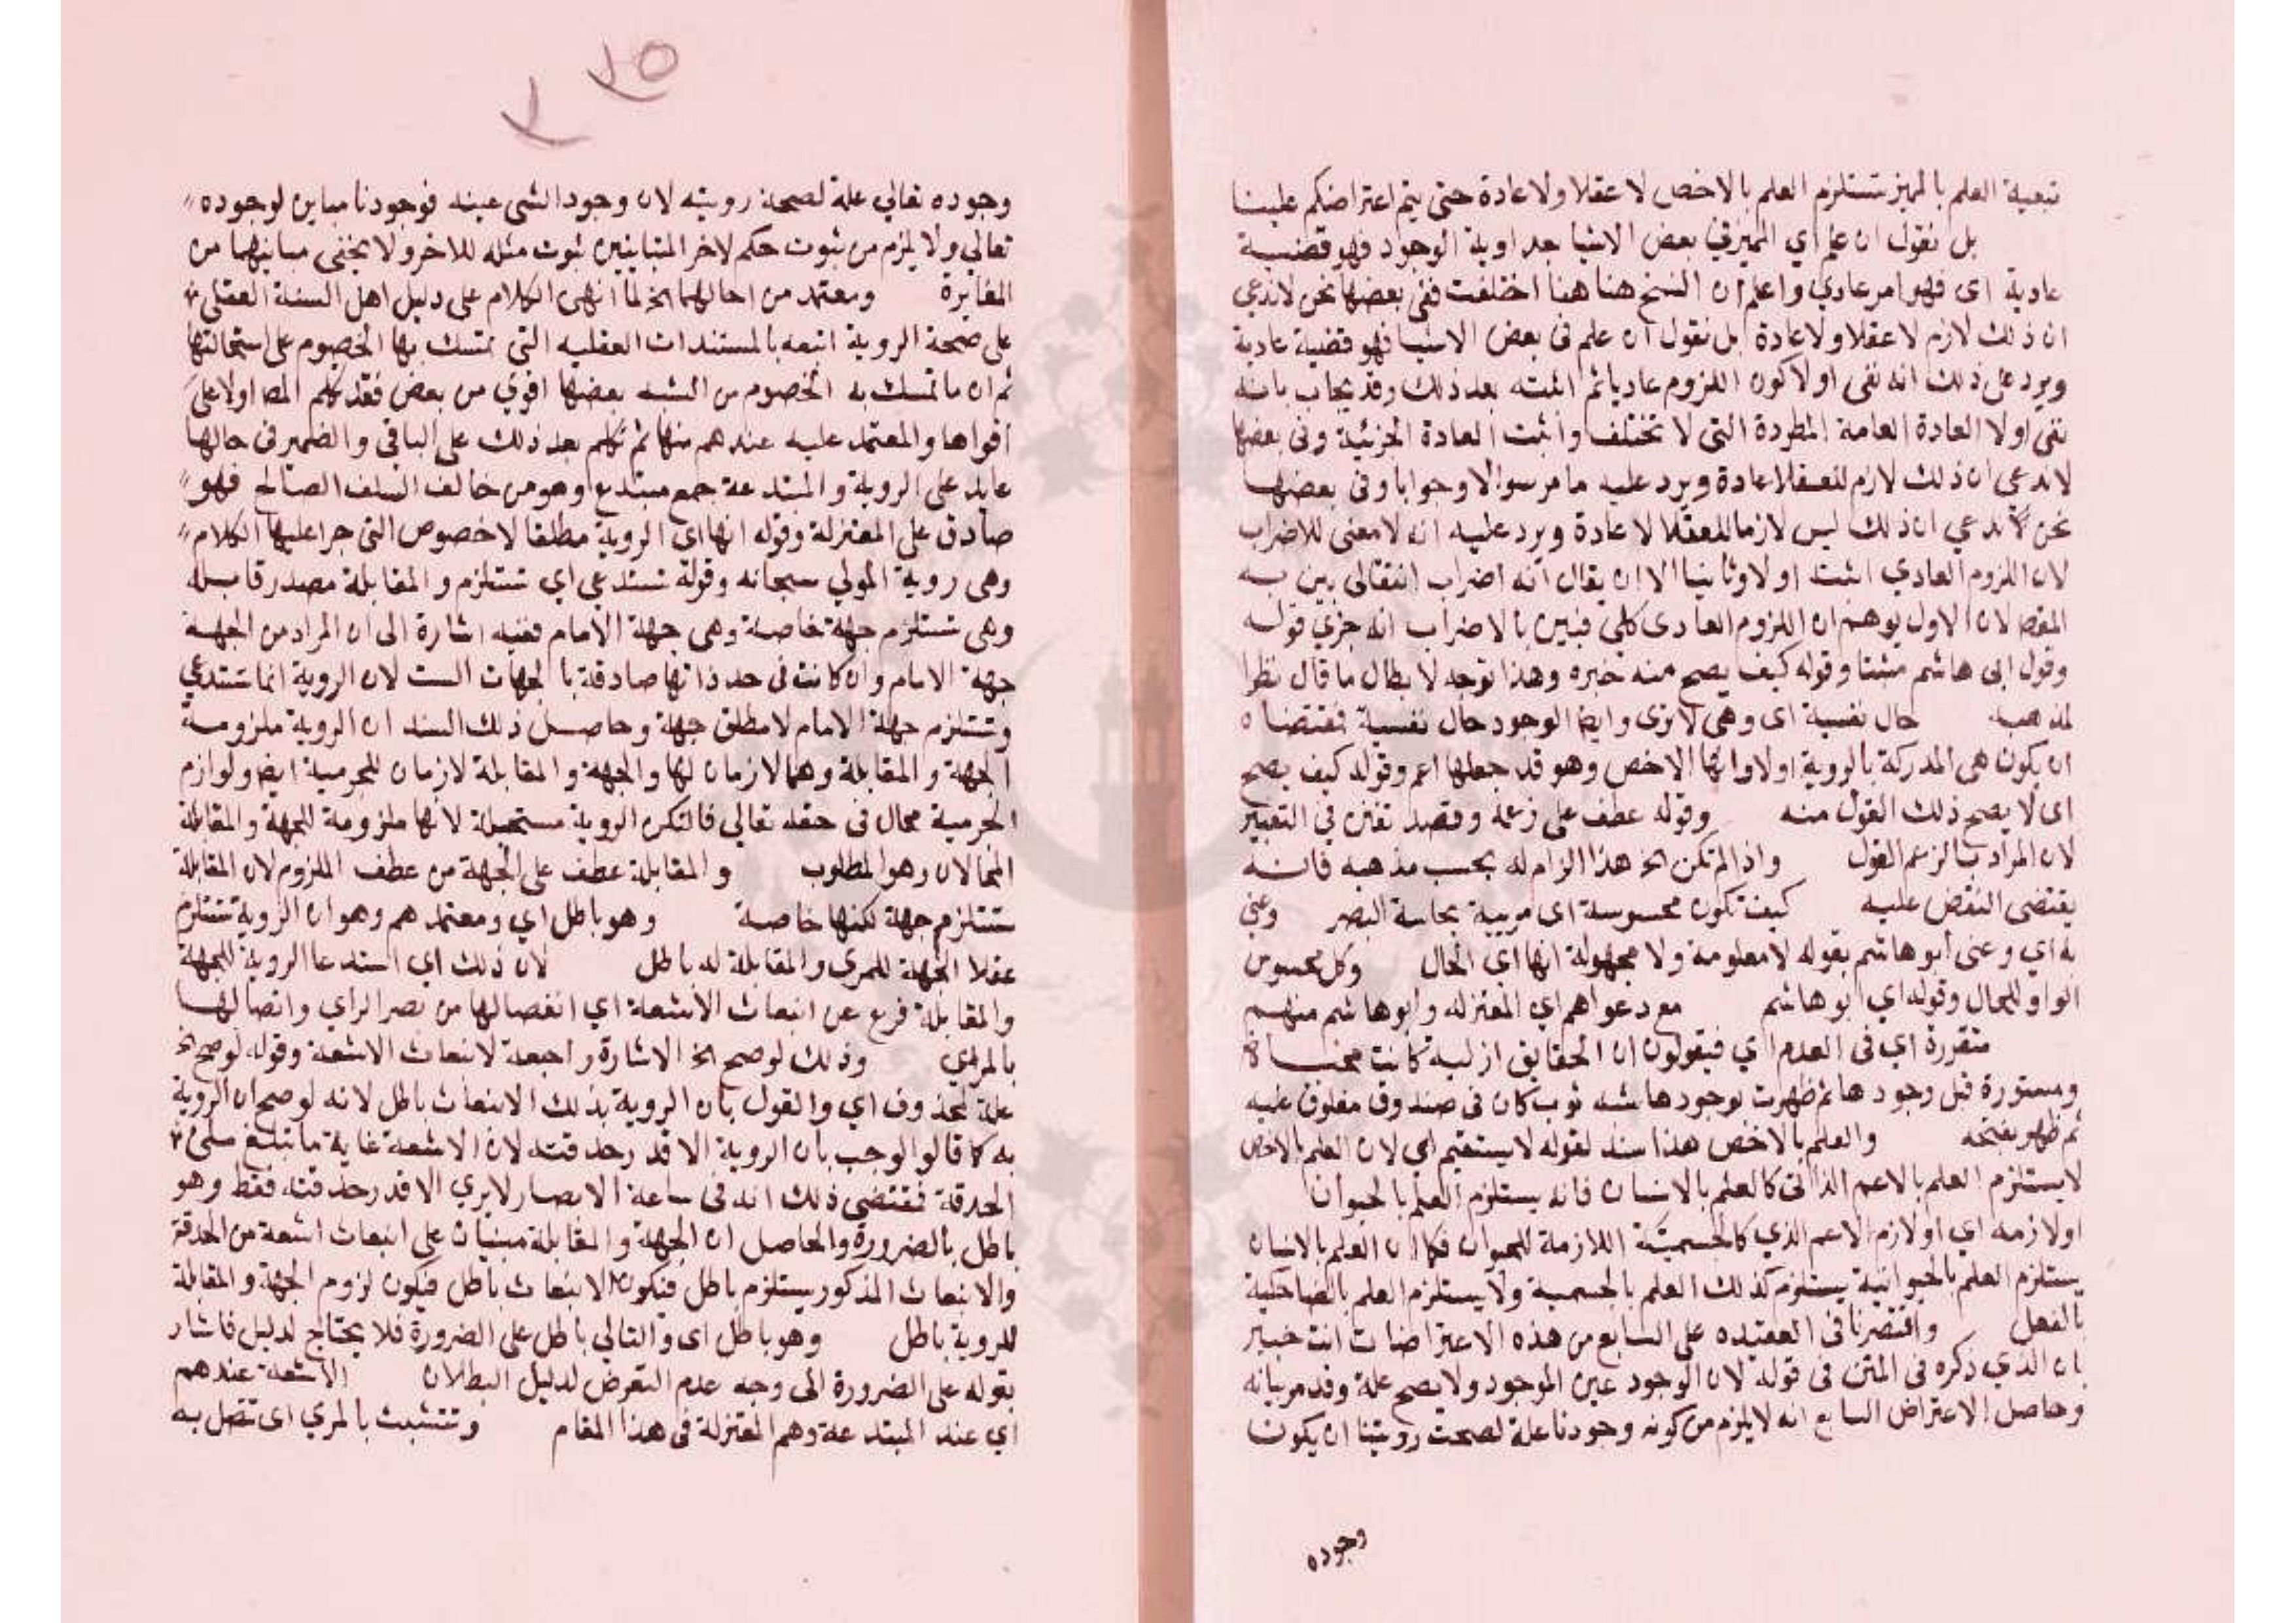 تبعية العلم بالمميز تستلزم العلم بالاخص لا عقلا ولا عادة حتى يتم اعتراضكم علينا
بل نقول ان علم اي المميز في بعض الاشيا الوجود فهو قضية
عادية اى فهو امر عادي واعلم ان النسخ هنا اختلفت ففى بعضها نحن لا ندعي
ان ذلك لازم لا عقلا ولا عادة بل نقول ان علم فى بعض الاشيا فهو قضية عادية
ويرد على ذلك انه نفى اولا كون اللزوم عاديا ثم اثبته بعد ذلك وقد يجاب بانه
نفى اولا العادة العامة المطردة التى لا تختلف واثبت العادة الجزئية وفى بعضها
لا ندعي ان ذلك لازم لا عادة ويرد عليه ما مر سوالا وجوابا وفى بعضها
نحن لا ندعي ان ذلك ليس لازما لا عقلا لا عادة ويرد عليه انه لا معنى للاضراب
لان اللزوم العادي اثبت اولا وثانيا الا ان يقال انه اضراب انتقالى بين به
المقص لان الاول يوهم ان اللزوم العادى كلي فبين بالاضراب انه جزي قوله
وقول ابى هاشم مبتدا وقوله كيف يصح منه خبره وهذا توجه لابطال ما قال نظرا
لمذهبه حال نفسية اى وهى لا ترى وايضا الوجود حال نفسية فمقتضاه
ان يكون هى المدركة بالروية اولا وانها الاخص وهو قد جعلها اعم وقوله كيف يصح
اى لا يصح ذلك القول منه وقوله عطف على زعمه وقصد تفنن في التعبير
لان المراد بالزعم القول واذا لم تكن الخ هذا الزام له بحسب مذهبه فانه
يقتضى النقض عليه كيف تكون محسوسة اى مريية بحاسة البصر وعنى
به اي وعنى أبو هاشم بقوله لا معلومة ولا مجهولة انها اي الحال وكل محسوس
الواو للحال وقوله اي ابو هاشم مع دعواهم اي المعتزله وابو هاشم منهم
متقررة اي فى العدم اي فيقولون ان الحقايق ازلية كانت مخباة
ومستورة قبل وجودها ثم ظهرت بوجودها شبه ثوب كان فى صندوق مغلوق عليه
ثم ظهر بفتحه والعلم بالاخص هذا سند لقوله لا يستقيم اي لان العلم بالاخص
لا يستلزم العلم بالاعم الذاتى كالعلم بالانسان فانه يستلزم العلم بالحيوان
او لازمه اي او لازم الاعم الذي كالجسمية اللازمة للحيوان فكما ان العلم بالانسان
يستلزم العلم بالحيوانية يستلزم كذلك العلم بالجسمية ولا يستلزم العلم بالضاحكية
بالفعل واقتصرنا فى العقيده على السابع من هذه الاعتراضات انت خبير
بان الذي ذكره فى المتن فى قوله لان الوجود عين الموجود ولا يصح علة وقد مر بيانه
وحاصل الاعتراض السابع انه لا يلزم من كونه وجودنا علة لصحت رويتنا ان يكون
وجوده
٢٥
وجوده تعالى علة لصحة رويته لان وجود الشى عينه فوجودنا مباين لوجوده
تعالي ولا يلزم من ثبوت حكم لاخر المتباينين ثبوت مثله للاخر ولا يخفى ما بينهما من
المغايرة ومعتمد من احالها الخ لما انهى الكلام على دليل اهل السنة العقلي
على صحة الروية اتبعه بالمستندات العقليه التى تمسك بها الخصوم على استحالتها
ثم ان ما تمسك به الخصوم من الشبه بعضها اقوي من بعض فقد تكلم المص اولا على
اقواها والمعتمد عليه عندهم منها ثم تكلم بعد ذلك على الباقي والضمير فى حالها
عايد على الروية والمبتدعة جمع مبتدع وهو من خالف السلف الصالح فهو
صادق على المعتزلة وقوله انها اى الروية مطلقا لا خصوص التى جرا عليها الكلام
وهى روية المولي سبحانه وقوله تستدعي اي تستلزم والمقابلة مصدر قابله
وهى تستلزم جهة خاصة وهى جهة الامام ففيه اشارة الى ان المراد من الجهة
جهة الامام وان كانت فى حد ذاتها صادقة بالجهات الست لان الروية انما تستدعي
وتستلزم جهة الامام لا مطلق جهة وحاصل ذلك السند ان الروية ملزومة
الجهة والمقابلة وهما لازمان لها والجهة والمقابلة لازمان للجرمية ايضا ولوازم
الجرمية محال فى حقه تعالي فلتكن الروية مستحيلة لانها ملزومة للجهة والمقابلة
المحالان وهو المطلوب والمقابلة عطف على الجهة من عطف الملزوم لان المقابلة
تستلزم جهة لكنها خاصة وهو باطل اي ومعتمدهم وهو ان الروية تستلزم
عقلا الجهة للمرى والمقابلة له باطل لان ذلك اي استدعا الروية للجهة
والمقابلة فرع عن انبعاث الاشعة اي انفصالها من بصر الراي واتصالها
بالمرلي وذلك لوصح الخ الاشارة راجعة لانبعاث الاشعة وقوله لو صح الخ
علة لمحذوف اي والقول بان الروية بذلك الانبعاث باطل لانه لو صح ان الروية
به كما قالو الوجب بان الروية الا قدر حدقته لان الاشعة غاية ما تبلغ
الحدقة فمقتضى ذلك انه فى ساعة الابصار لا يري الا قدر حدقته فقط وهو
باطل بالضرورة والحاصل ان الجهة والمقابلة مبنيان على انبعاث اشعة من الحدقة
والانبعاث المذكور يستلزم باطل فتكون الانبعاث باطل فيكون لزوم الجهة والمقابلة
للروية باطل وهو باطل اى والتالي باطل على الضرورة فلا يحتاج لدليل فاشار
بقوله على الضرورة الى وجه عدم التعرض لدليل البطلان الاشعة عندهم
اي عند المبتدعة وهم المعتزلة فى هذا المقام وتتشبث بالمري اى تتصل به